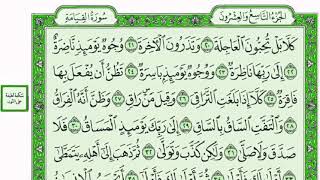 الجزء التاسع والعشرون
سورة القيامة
كَلَّا بَلْ تُحِبُّونَ الْعَاجِلَةَ ٢٠ وَتَذَرُونَ الْآخِرَةَ ٢١ وُجُوهٌ يَوْمَئِذٍ نَاضِرَةٌ
٢٢ إِلَى رَبِّهَا نَاظِرَةٌ ٢٣ وَوُجُوهٌ يَوْمَئِذٍ بَاسِرَةٌ ٢٤ تَظُنُّ أَنْ يُفْعَلَ بِهَا
فَاقِرَةٌ ٢٥ كَلَّا إِذَا بَلَغَتِ التَّرَاقِيَ ٢٦ وَقِيلَ مَنْ رَاقٍ ٢٧ وَظَنَّ أَنَّهُ الْفِرَاقُ
٢٨ وَالْتَفَّتِ السَّاقُ بِالسَّاقِ ٢٩ إِلَى رَبِّكَ يَوْمَئِذٍ الْمَسَاقُ ٣٠ فَلَا
صَدَّقَ وَلَا صَلَّى ٣١ وَلَكِنْ كَذَّبَ وَتَوَلَّى ٣٢ ثُمَّ ذَهَبَ إِلَى أَهْلِهِ يَتَمَطَّى